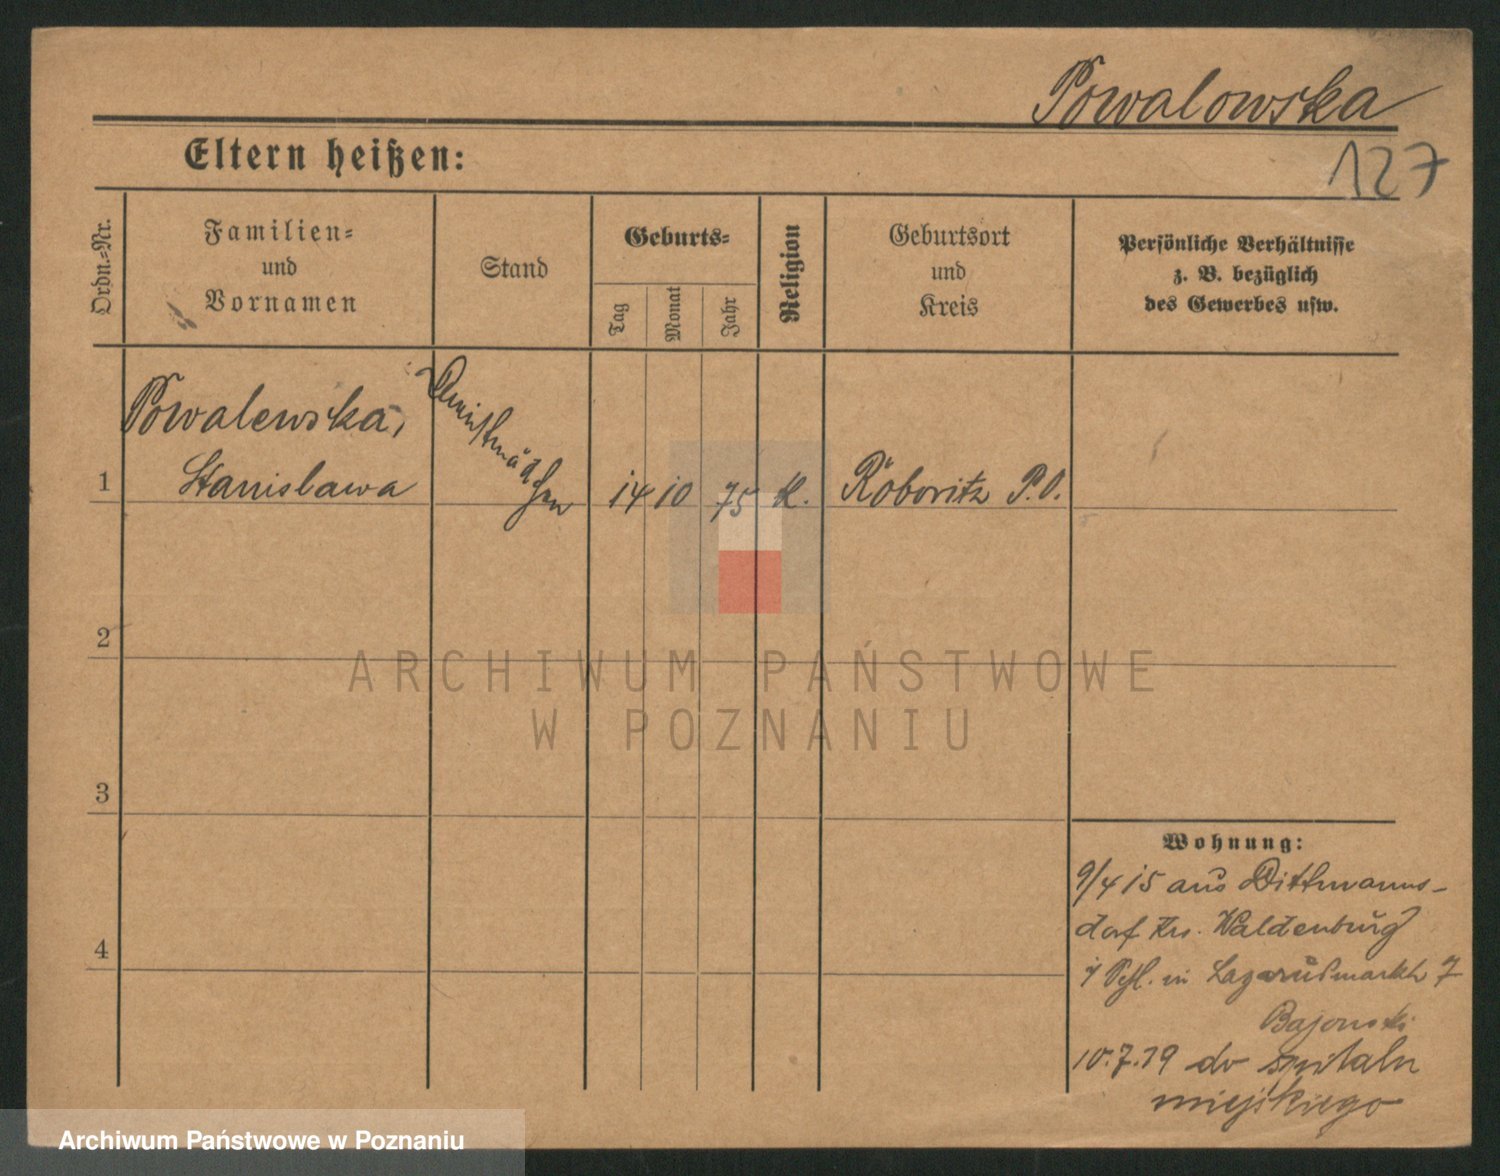 Powalowska
127
Eltern heißen:
Ordn.-Nr.
Familien-
und
Vornamen
Stand
Geburts-
Tag
Monat
Jahr
Religion
Geburtsort
und
Kreis
Persönliche Verhältnisse
z. B. bezüglich
des Gewerbes usw.
Powalewska,
Dienstmädchen
1 Stanislawa 14 10 75 K. Röboritz P. O.
2
3
4
Wohnung:
9/4 15 aus Dittmanns-
dorf Krs. Waldenburg
in Lazarusmarkt 7
Bajonski
10.7.19 do szpitalu
miejskiego
ARCHIWUM PAŃSTWOWE
W POZNANIU
Archiwum Państwowe w Poznaniu